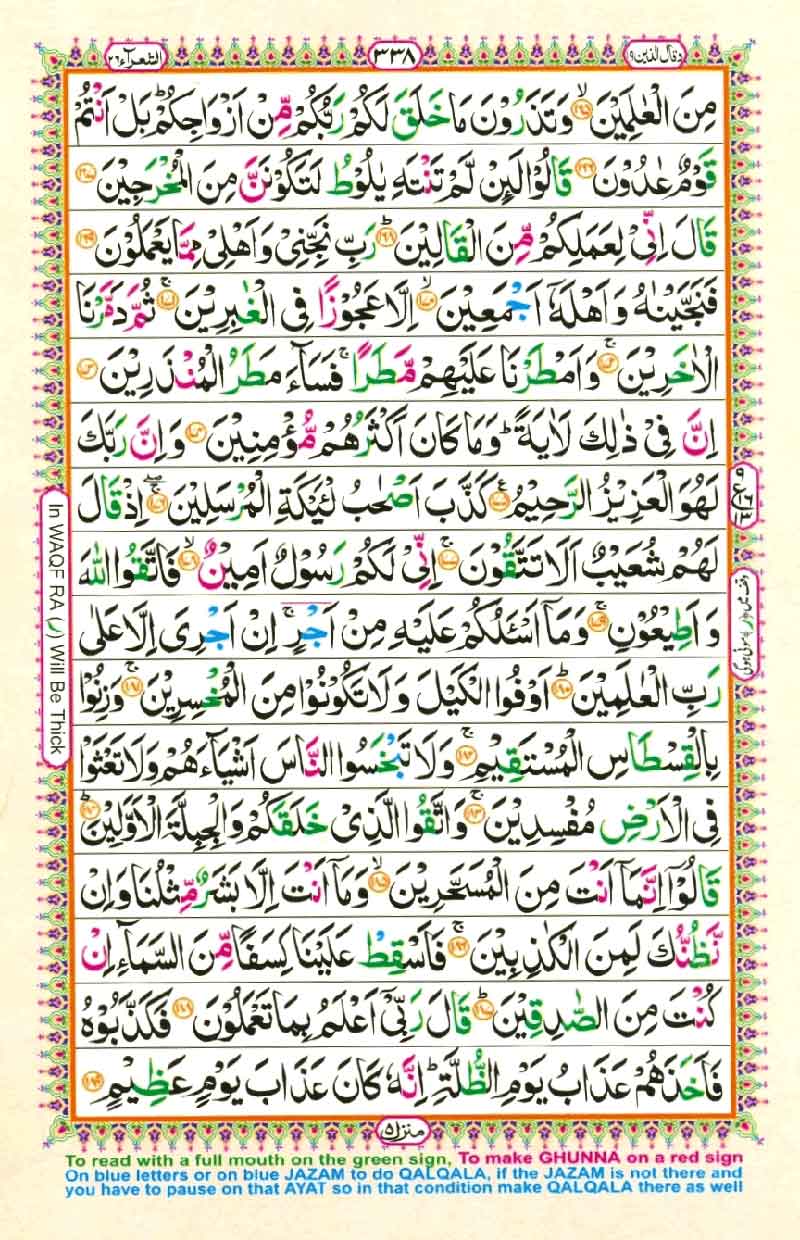 وقال الذین ۱۹
۳۳۸
الشعرآء ۲۶
مِنَ الْعٰلَمِیْنَ ۙ﴿۱۶۵﴾ وَتَذَرُوْنَ مَا خَلَقَ لَكُمْ رَبُّكُمْ مِّنْ اَزْوَاجِكُمْ ؕ بَلْ اَنْتُمْ
قَوْمٌ عٰدُوْنَ ﴿۱۶۶﴾ قَالُوْا لَئِنْ لَّمْ تَنْتَهِ یٰلُوْطُ لَتَكُوْنَنَّ مِنَ الْمُخْرَجِیْنَ ﴿۱۶۷﴾
قَالَ اِنِّیْ لِعَمَلِكُمْ مِّنَ الْقَالِیْنَ ؕ﴿۱۶۸﴾ رَبِّ نَجِّنِیْ وَاَهْلِیْ مِمَّا یَعْمَلُوْنَ ﴿۱۶۹﴾
فَنَجَّیْنٰهُ وَاَهْلَهٗۤ اَجْمَعِیْنَ ۙ﴿۱۷۰﴾ اِلَّا عَجُوْزًا فِی الْغٰبِرِیْنَ ۚ﴿۱۷۱﴾ ثُمَّ دَمَّرْنَا
الْاٰخَرِیْنَ ۚ﴿۱۷۲﴾ وَاَمْطَرْنَا عَلَیْهِمْ مَّطَرًا ۚ فَسَآءَ مَطَرُ الْمُنْذَرِیْنَ ﴿۱۷۳﴾
اِنَّ فِیْ ذٰلِكَ لَاٰیَةً ؕ وَمَا كَانَ اَكْثَرُهُمْ مُّؤْمِنِیْنَ ﴿۱۷۴﴾ وَاِنَّ رَبَّكَ
لَهُوَ الْعَزِیْزُ الرَّحِیْمُ ﴿۱۷۵﴾ كَذَّبَ اَصْحٰبُ لْئَیْكَةِ الْمُرْسَلِیْنَ ۚۖ﴿۱۷۶﴾ اِذْ قَالَ
لَهُمْ شُعَیْبٌ اَلَا تَتَّقُوْنَ ۚ﴿۱۷۷﴾ اِنِّیْ لَكُمْ رَسُوْلٌ اَمِیْنٌ ۙ﴿۱۷۸﴾ فَاتَّقُوا اللّٰهَ
وَاَطِیْعُوْنِ ۚ﴿۱۷۹﴾ وَمَاۤ اَسْـَٔلُكُمْ عَلَیْهِ مِنْ اَجْرٍ ۚ اِنْ اَجْرِیَ اِلَّا عَلٰی
رَبِّ الْعٰلَمِیْنَ ؕ﴿۱۸۰﴾ اَوْفُوا الْكَیْلَ وَلَا تَكُوْنُوْا مِنَ الْمُخْسِرِیْنَ ۚ﴿۱۸۱﴾ وَزِنُوْا
بِالْقِسْطَاسِ الْمُسْتَقِیْمِ ۚ﴿۱۸۲﴾ وَلَا تَبْخَسُوا النَّاسَ اَشْیَآءَهُمْ وَلَا تَعْثَوْا
فِی الْاَرْضِ مُفْسِدِیْنَ ۚ﴿۱۸۳﴾ وَاتَّقُوا الَّذِیْ خَلَقَكُمْ وَالْجِبِلَّةَ الْاَوَّلِیْنَ ؕ﴿۱۸۴﴾
قَالُوْۤا اِنَّمَاۤ اَنْتَ مِنَ الْمُسَحَّرِیْنَ ۙ﴿۱۸۵﴾ وَمَاۤ اَنْتَ اِلَّا بَشَرٌ مِّثْلُنَا وَاِنْ
نَّظُنُّكَ لَمِنَ الْكٰذِبِیْنَ ۚ﴿۱۸۶﴾ فَاَسْقِطْ عَلَیْنَا كِسَفًا مِّنَ السَّمَآءِ اِنْ
كُنْتَ مِنَ الصّٰدِقِیْنَ ؕ﴿۱۸۷﴾ قَالَ رَبِّیْۤ اَعْلَمُ بِمَا تَعْمَلُوْنَ ﴿۱۸۸﴾ فَكَذَّبُوْهُ
فَاَخَذَهُمْ عَذَابُ یَوْمِ الظُّلَّةِ ؕ اِنَّهٗ كَانَ عَذَابَ یَوْمٍ عَظِیْمٍ ﴿۱۸۹﴾
In WAQF RA (ر) Will Be Thick
منزل ۵
To read with a full mouth on the green sign, To make GHUNNA on a red sign
On blue letters or on blue JAZAM to do QALQALA, if the JAZAM is not there and
you have to pause on that AYAT so in that condition make QALQALA there as well